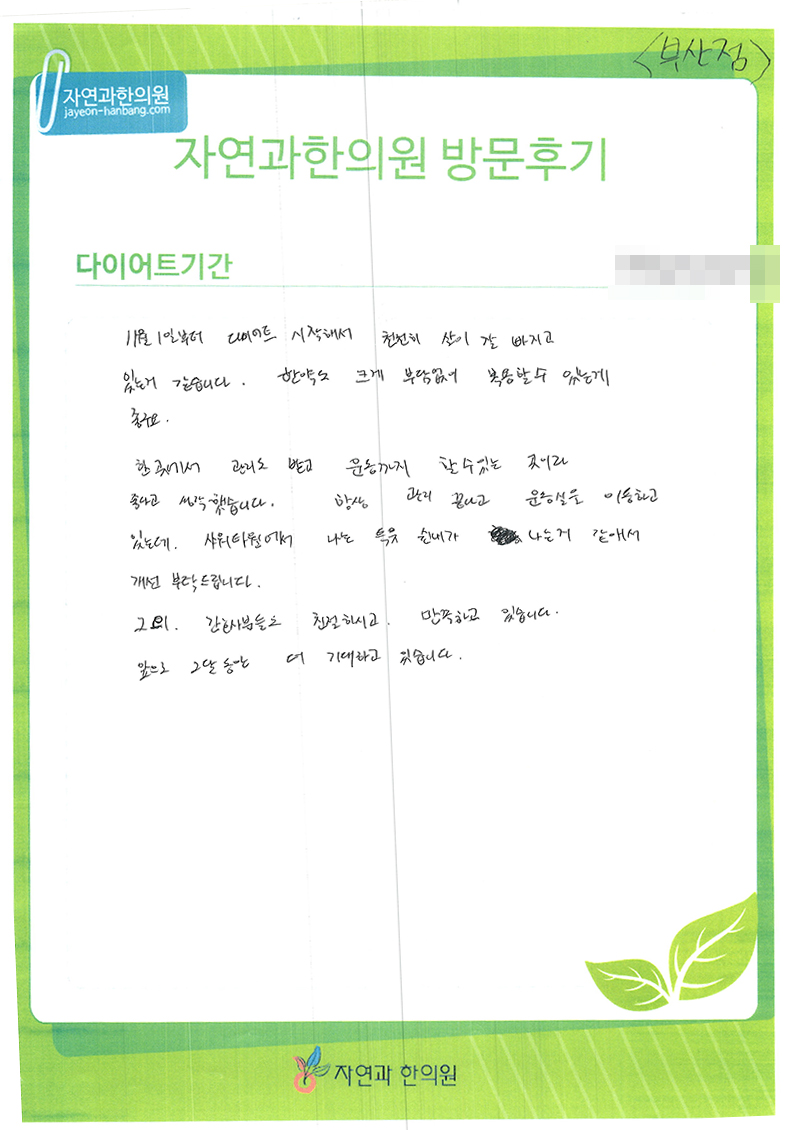 <부산점>
자연과한의원
jayeon-hanbang.com
자연과한의원 방문후기
다이어트기간
11월 1일부터 다이어트 시작해서 천천히 살이 잘 빠지고
있는거 같습니다. 한약도 크게 부담없이 복용할수 있는게
좋구요.
한 곳에서 관리도 받고 운동까지 할 수 있는 곳이라
좋다고 생각했습니다. 항상 관리 끝나고 운동실을 이용하고
있는데, 샤워타월에서 나는 특유 쉰내가 나는거 같아서
개선 부탁드립니다.
그 외. 간호사분들도 친절하시고. 만족하고 있습니다.
앞으로 2달 동안 더 기대하고 있습니다.
자연과 한의원